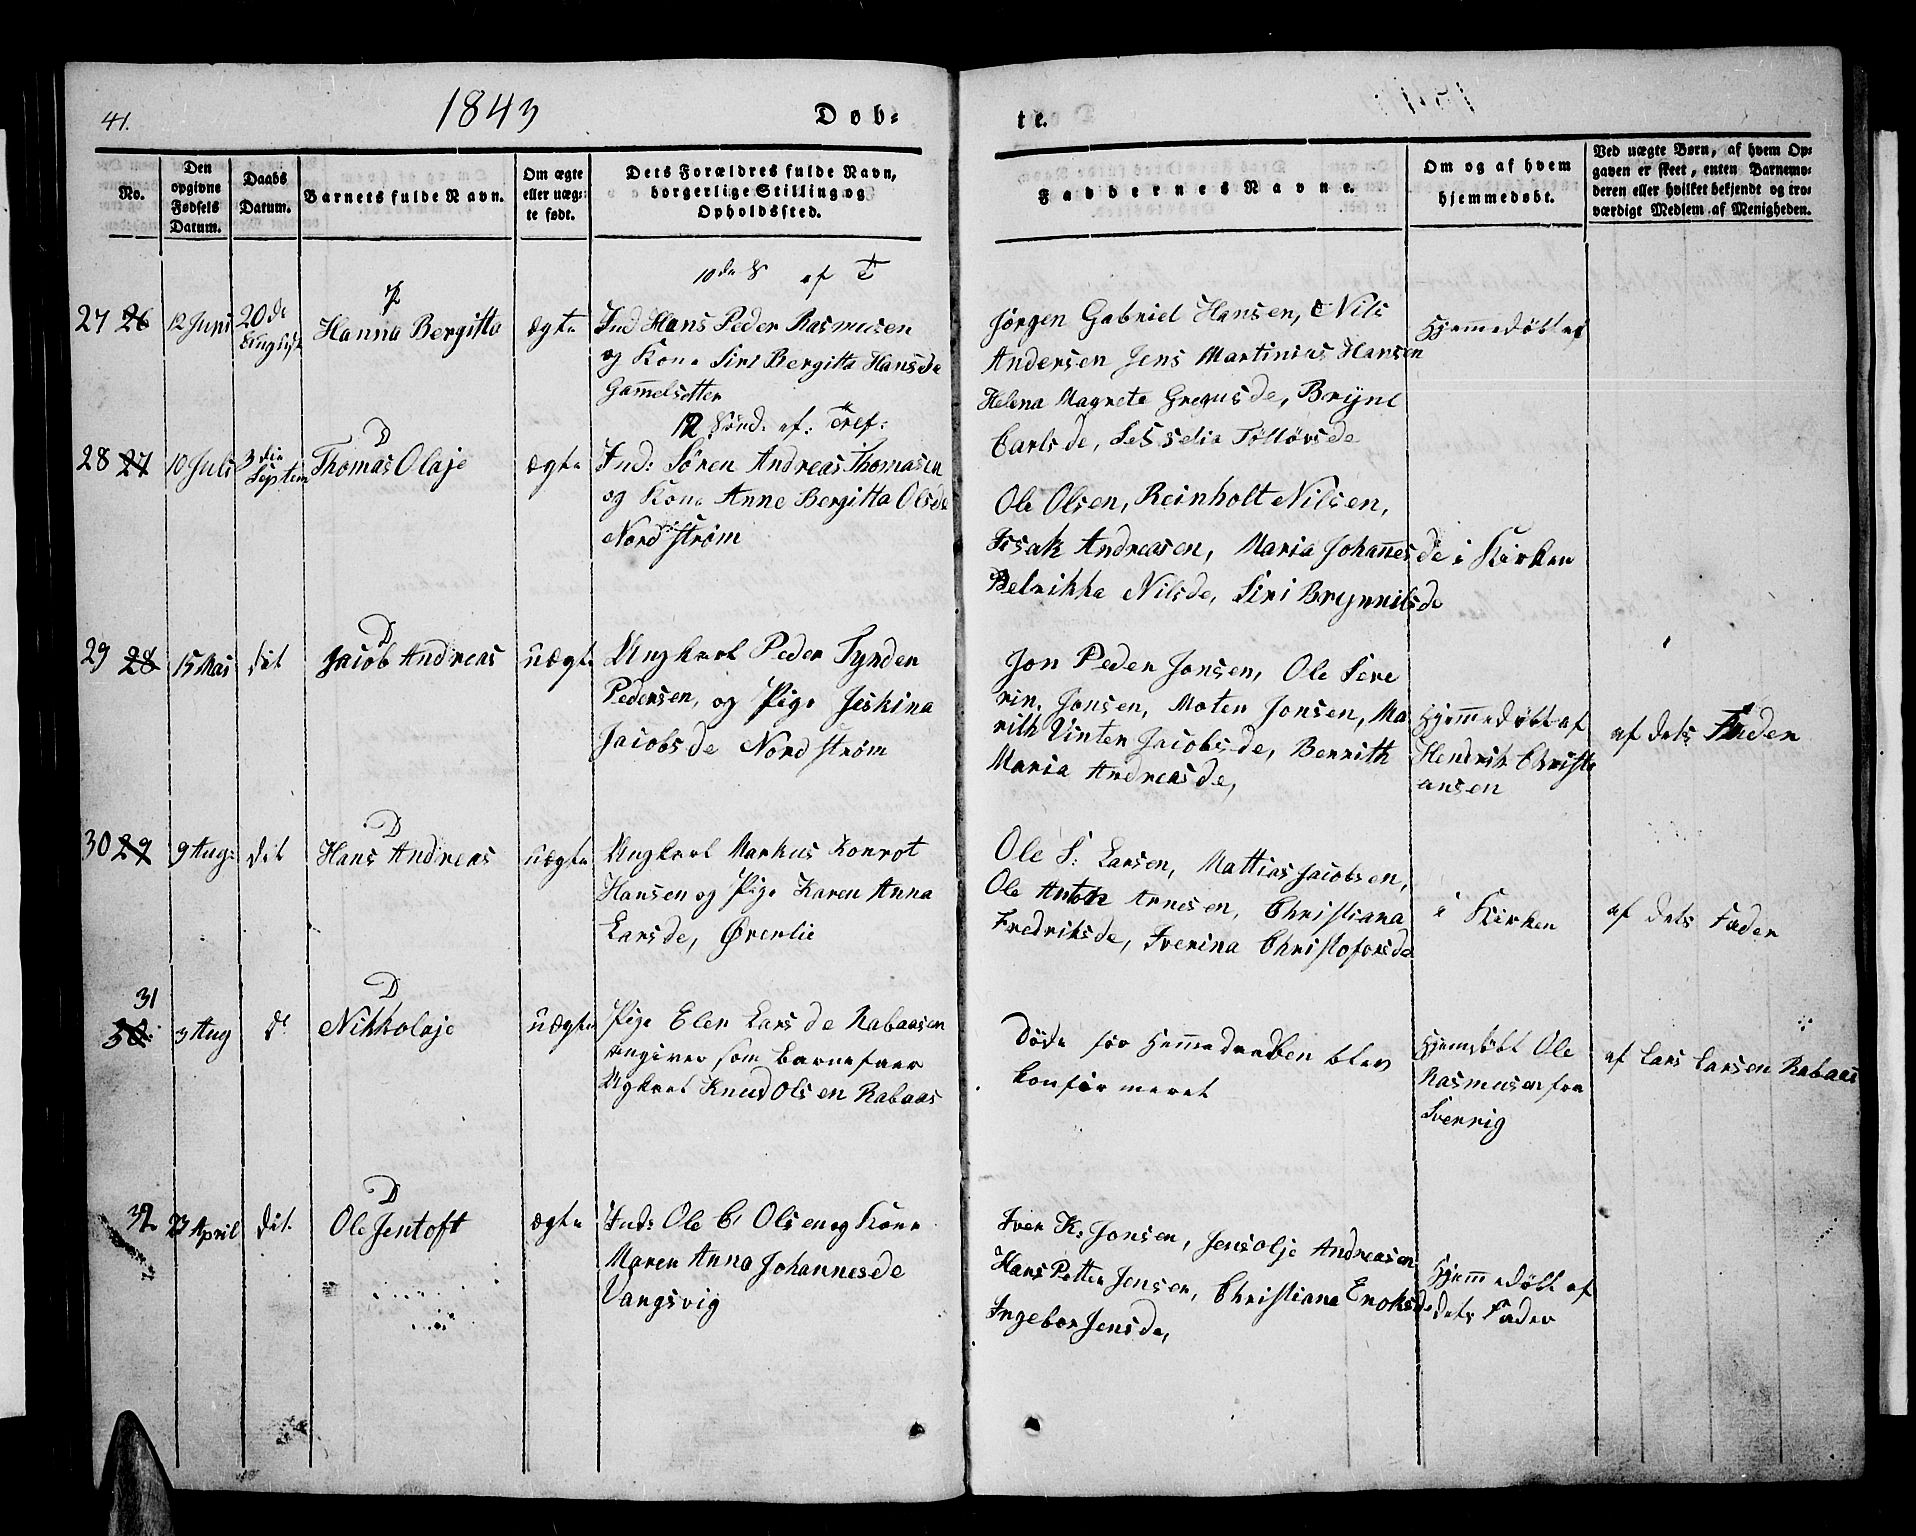 41.
1843
Døb-
te.
No.
Den opgivne Fødsels Datum.
Daabs Datum.
Barnets fulde Navn.
Om ægte eller uæg- te født.
Dets Forældres fulde Navn, borgerlige Stilling og Opholdssted.
Faddernes Navne.
Om og af hvem hjemmedøbt.
Ved uægte Børn, af hvem Op- gaven er skeet, enten Barnemo- deren eller hvilket bekjendt og tro- værdigt Medlem af Menigheden.
10de S af T
27 26 12 Juni 20de August Hanna Bergitta ægte
Ind Hans Peder Rasmusen
og Kone Siri Bergitta Hansde
Gammelsetter
Jørgen Gabriel Hansen, Nils
Andersen Jens Martinius Hansen
Helena Magrete Gregusde, Brynl
Carlsde, Sesselia Tølløvsde
Hjemmedøbt af
12 Sønd. af: Tref:
28 27 10 Juli 3die Septem D Thomas Olaje ægte
Ind: Søren Andreas Thomasen
og Kone Anne Bergitta Olsde
Nordstrøm
Ole Olsen, Reinholt Nilsen,
Isak Andreasen, Maria Johannesde
Petrikka Nilsde, Siri Brynnilsde
i Kirken
29 28 15 Mai dit D Jacob Andreas uægte
Ungkarl Peder Tynden
Pedersen, og Pige Jeskina
Jacobsde Nordstrøm
Jon Peder Jonsen, Ole Seve
rin. Jonsen, Moten Jonsen, Ma
rith Vinter Jacobsde, Berrith
Maria Andreasde,
Hjemmedøbt af
Hendrik Christi
ansen
af dets Fader
30 29 9 Aug: dit D Hans Andreas uægte
Ungkarl Markus Konrot
Hansen og Pige Karen Anna
Larsde, Øverlie
Ole S: Larsen, Mattias Jacobsen,
Ole Anton Arnesen, Christiana
Fredriksde, Iverina Christofersde
i Kirken
af dets Fader
31
30: 3 Aug dt D Nikkolaje uægte
Pige Elen Larsde Rabaasen
angiver som barnefaer
Ugkarl Knud Olsen Rabaas
Døde før Hemmedaaben blev
konfirmeret
Hjemdøbt Ole
Rasmusen fra
Sverrig
af Lars Larsen Rabaas
32 23 April dit. D Ole Jentoft ægte
Ind: Ole C: Olsen og Kone
Maren Anna Johannesde
Vangsvig
Iver K: Jonsen, Jensolje Andreasen
Hans Petter Jensen, Christiana Enoksde
Ingebor Jensde,
Hjemmedøbt af
dets Fader